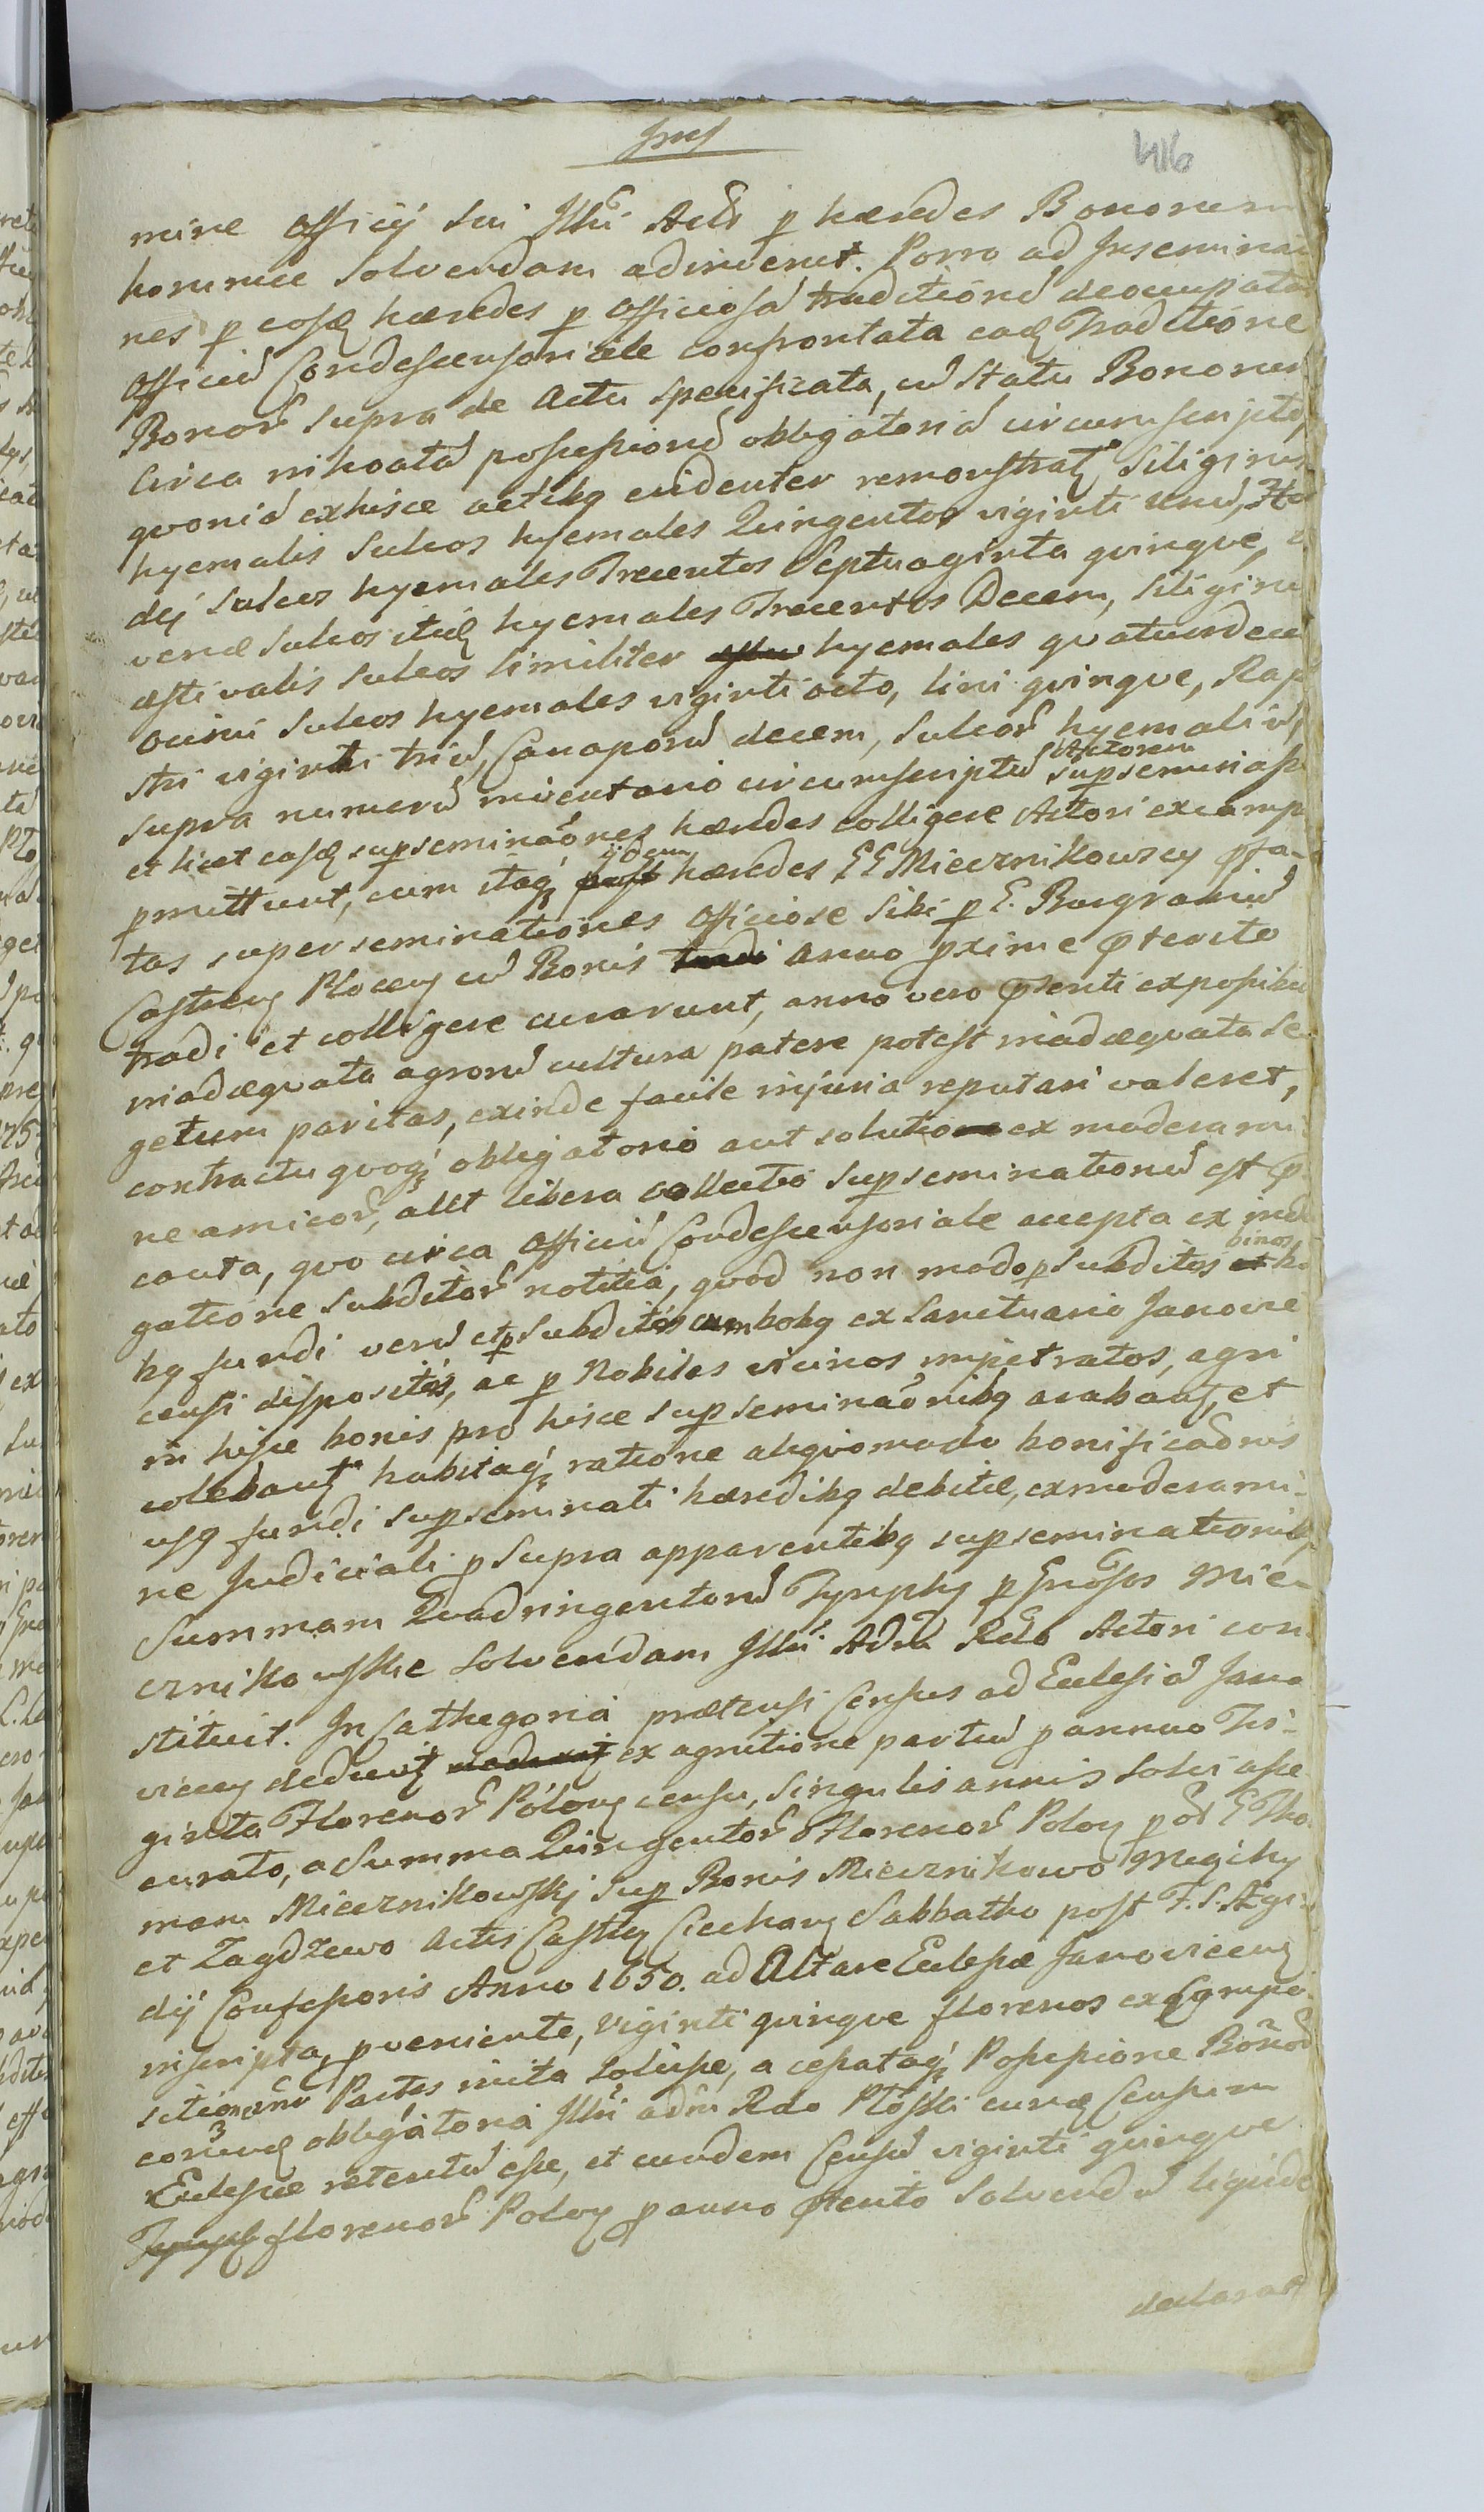 416
mine Officÿ sui Illri Adr p hæredes Bonorum
horumce solvendam adinvenit. Porro ad Inseminao
nes p eosq hæredes p Officiosã traditionẽ deoccupatas
Officiũ Condescensoriale confrontata eaq Traditione
Bonor supra de Actu specificata, cũ statu Bonorum
circa inhoatã possessionẽ obligatoriã circumscripto,
qvoniã exhisce actibq evidenter remonstratʳ Siliginis
hyemalis sulcos hyemales Qvingentos viginti unũ,
dej sulcos hyemales Trecentos Septuaginta qvinqve,
venæ sulcos itidẽ hyemales Trecentos Decem, siliginis
æstivalis sulcos similiter hyemales qvatuordecim
sulcos hyemales viginti octo, lini qvinqve, Rap
stri viginti triũ, Canaporũ decem, sulcor hyemaliũ,
supra numerũ inventario circumscriptũ Actorem supseminasse
et licet easq supseminaõnes hæredes colligere Actori excamp
pmittunt, cum itaq ijdem hæredes GG Miecznikowscy pfa-
tas superseminationes officiose sibi p G. Burgrabiũ
Castreñ Plocen cũ Bonis anno pxime pterito
tradi et colligere curarunt, anno vero psenti exposibili
inadæqvata agrorũ cultura patere potest inadæqvata se
getum paritas, exinde facile injuria reputari valeret,
contractu qvoq obligatorio aut solutio ex moderami
ne amicor, aut libera collectio supseminationũ est p
cauta, qvo circa Officiũ Condescensoriale accepta ex inda
gatione subditor notitia, qvod non modo p subditos binos ho
bq fundi verũ et p subditos cum bobq ex Sanctuario Janowie
censi dispositos, ac p Nobiles vicinos impetratos, agri
in hisce bonis pro hisce supseminaõnibq arabantʳ, et
colebantʳ habitaq ratione aliqvomodo bonificaõnis
usq fundi supseminati hæredibq debitæ, ex moderami-
ne Judiciali p supra apparentibq supseminationibq
Summam Qvadringentorũ Tynphq p Gnosos Mie-
cznikowskie solvendam Illri Adm Rdo Actori con
stituit. In Cathegoria prætensi Census ad Ecclesiã Jano
vicen deducti ex agnitione partiũ p annuo Tri-
ginta Florenor Polon censu, singulis annis solvi asse
curato, a Summa Qvingentor Florenor Polon p ol G Tho
mam Miecznikowskj sup Bonis Miecznikowo Megihy
et Zagdzewo Actis Castren Ciechan Sabbatho post F. S. Ægi
dij Confessoris Anno 1650. ad Altare Eclesiæ Janovicen
inscripta, pveniente, viginti qvinqve florenos ex Compo
sitione inr Partes inita solvisse, a cessataq Possessione Bonor
eorundẽ obligatoria Illri adm Rdo Płoski curæ Censum
Eclesiæ retentũ esse, et eundem Censũ viginti qvinqve
florenor Polon p anno pterito solvendũ liqvide
declarat